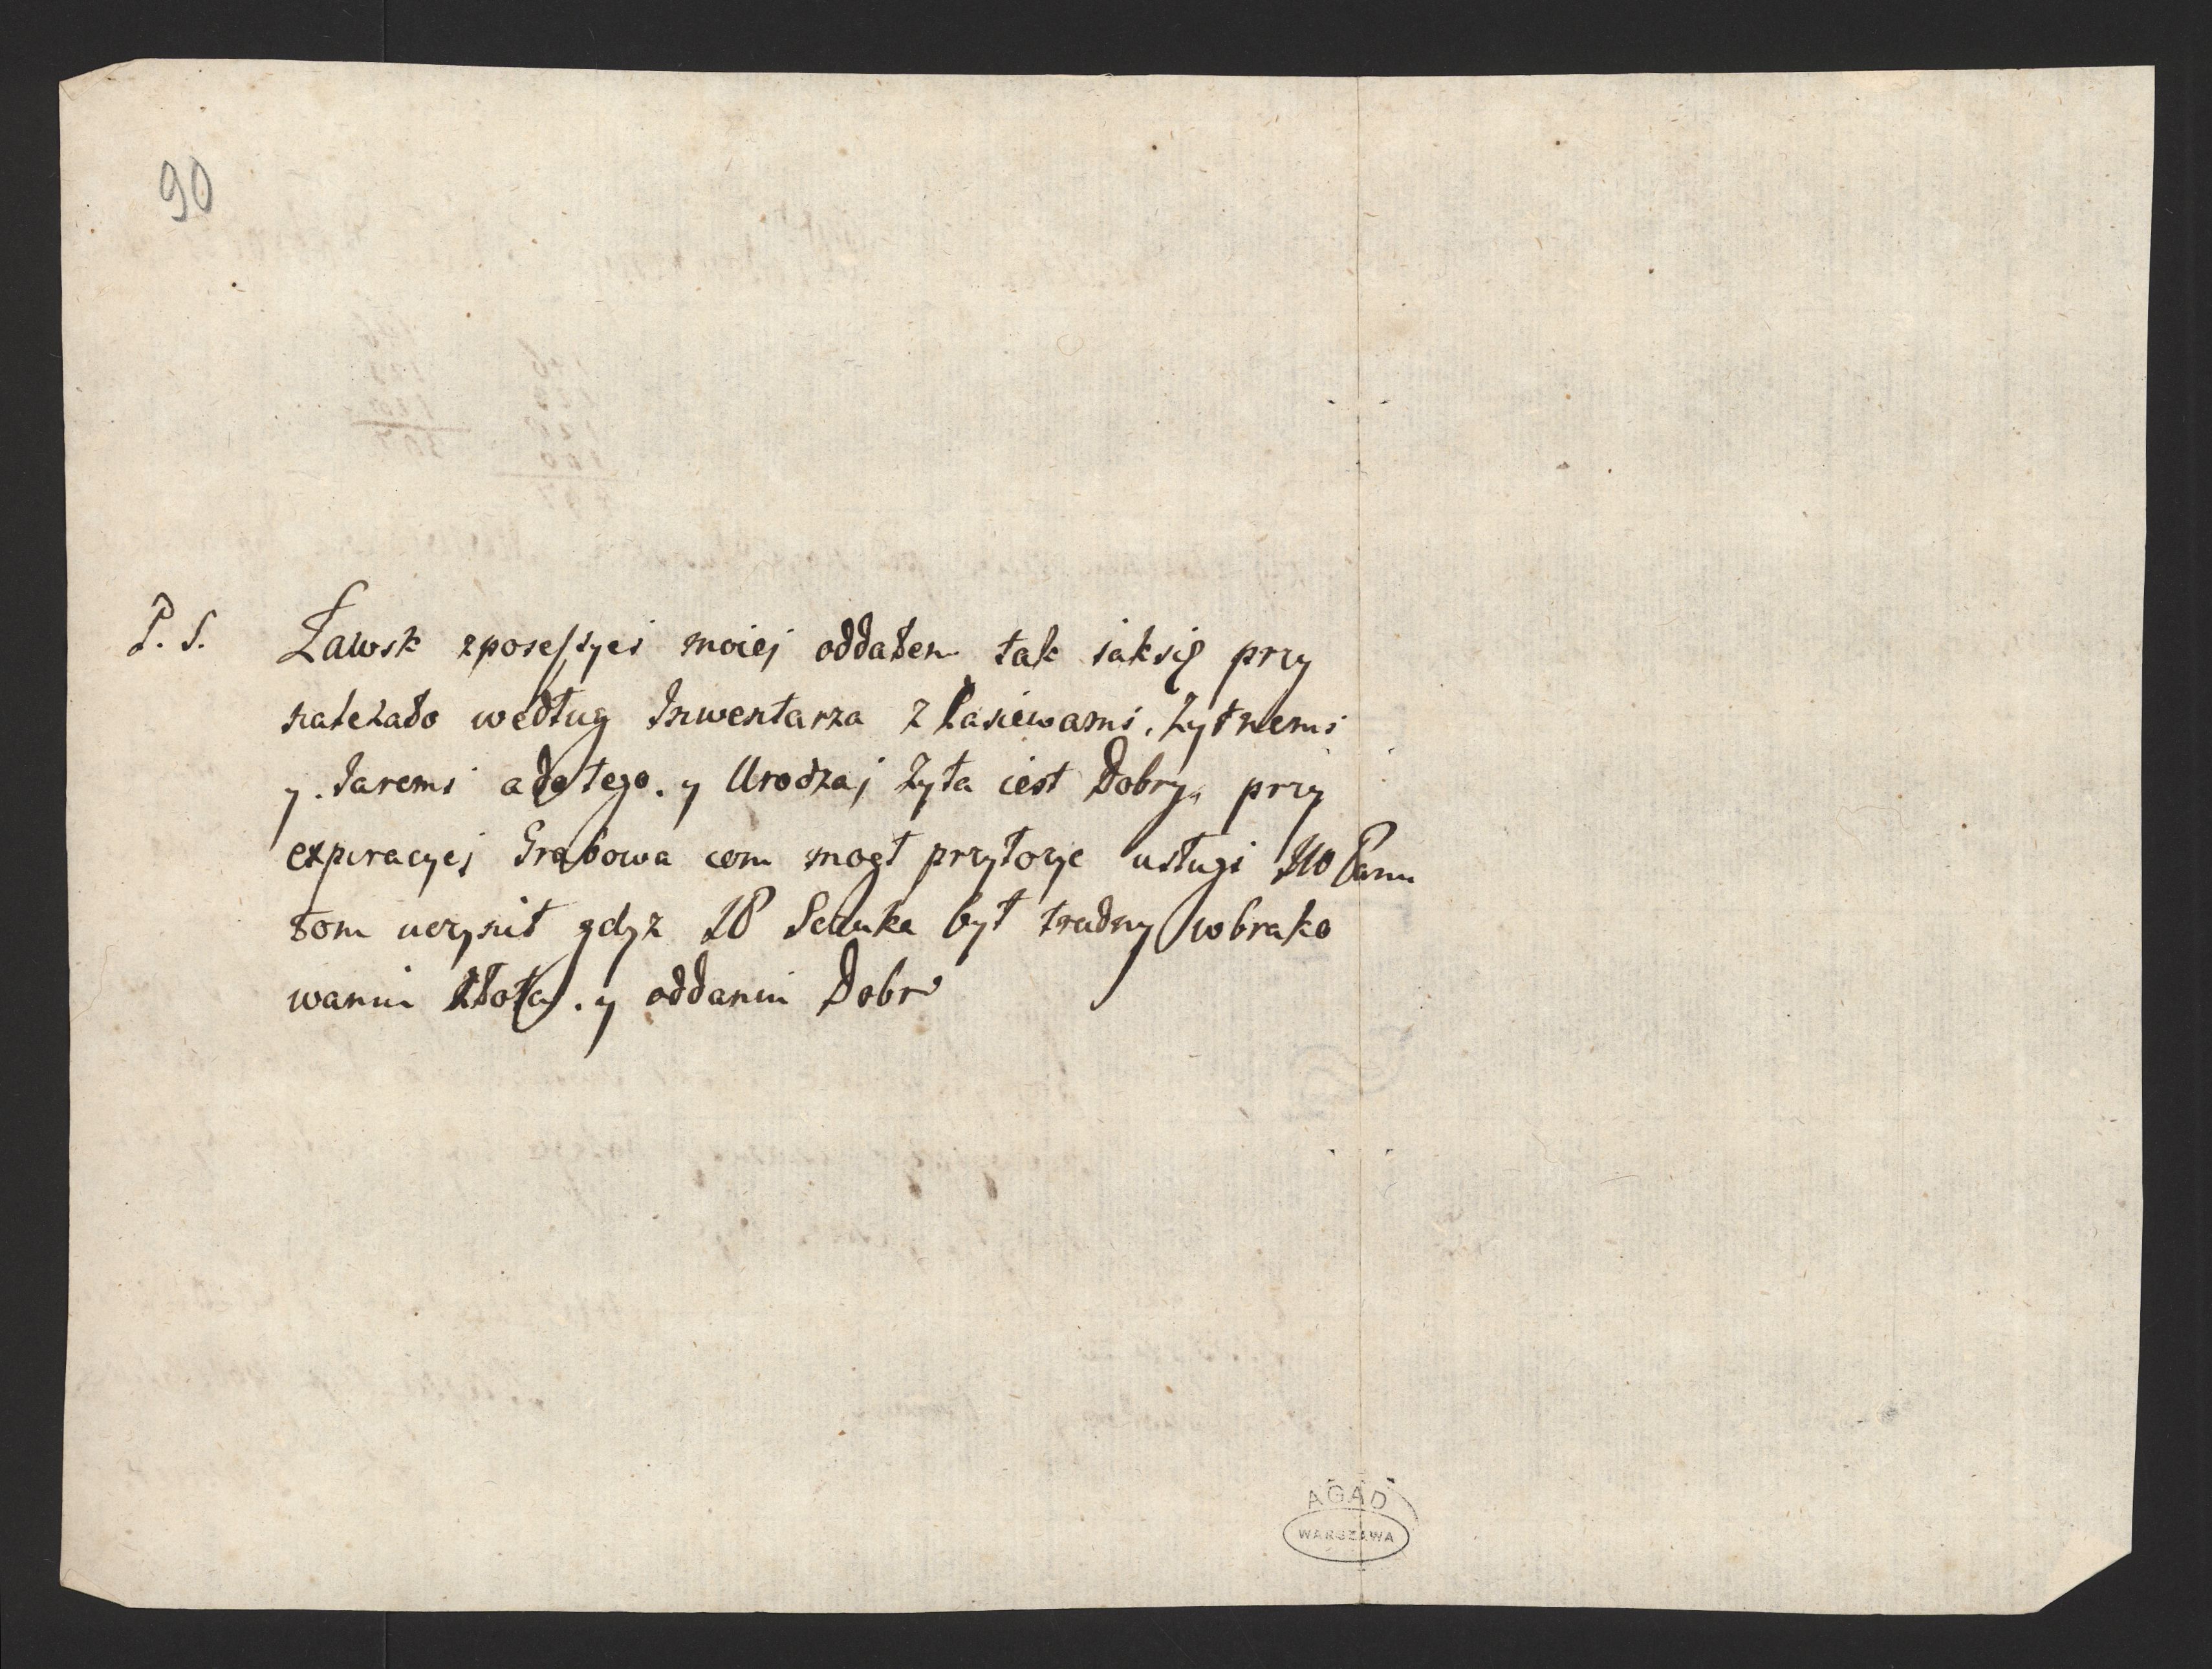 90
P. S. Ławsk zposessyei moiej oddałem tak iaksię przy
należało według Inwentarza z Zasiewami, Żytnemi
y. Jaremi adotego. y Urodzaj Żyta iest Dobry, przy
expiracyej Grabowa com mogł przyłozyc usługi WPanu
tom uczynił gdyz JP był trudny wbrako
waniu złota. y oddaniu Dobr
AGAD
WARSZAWA